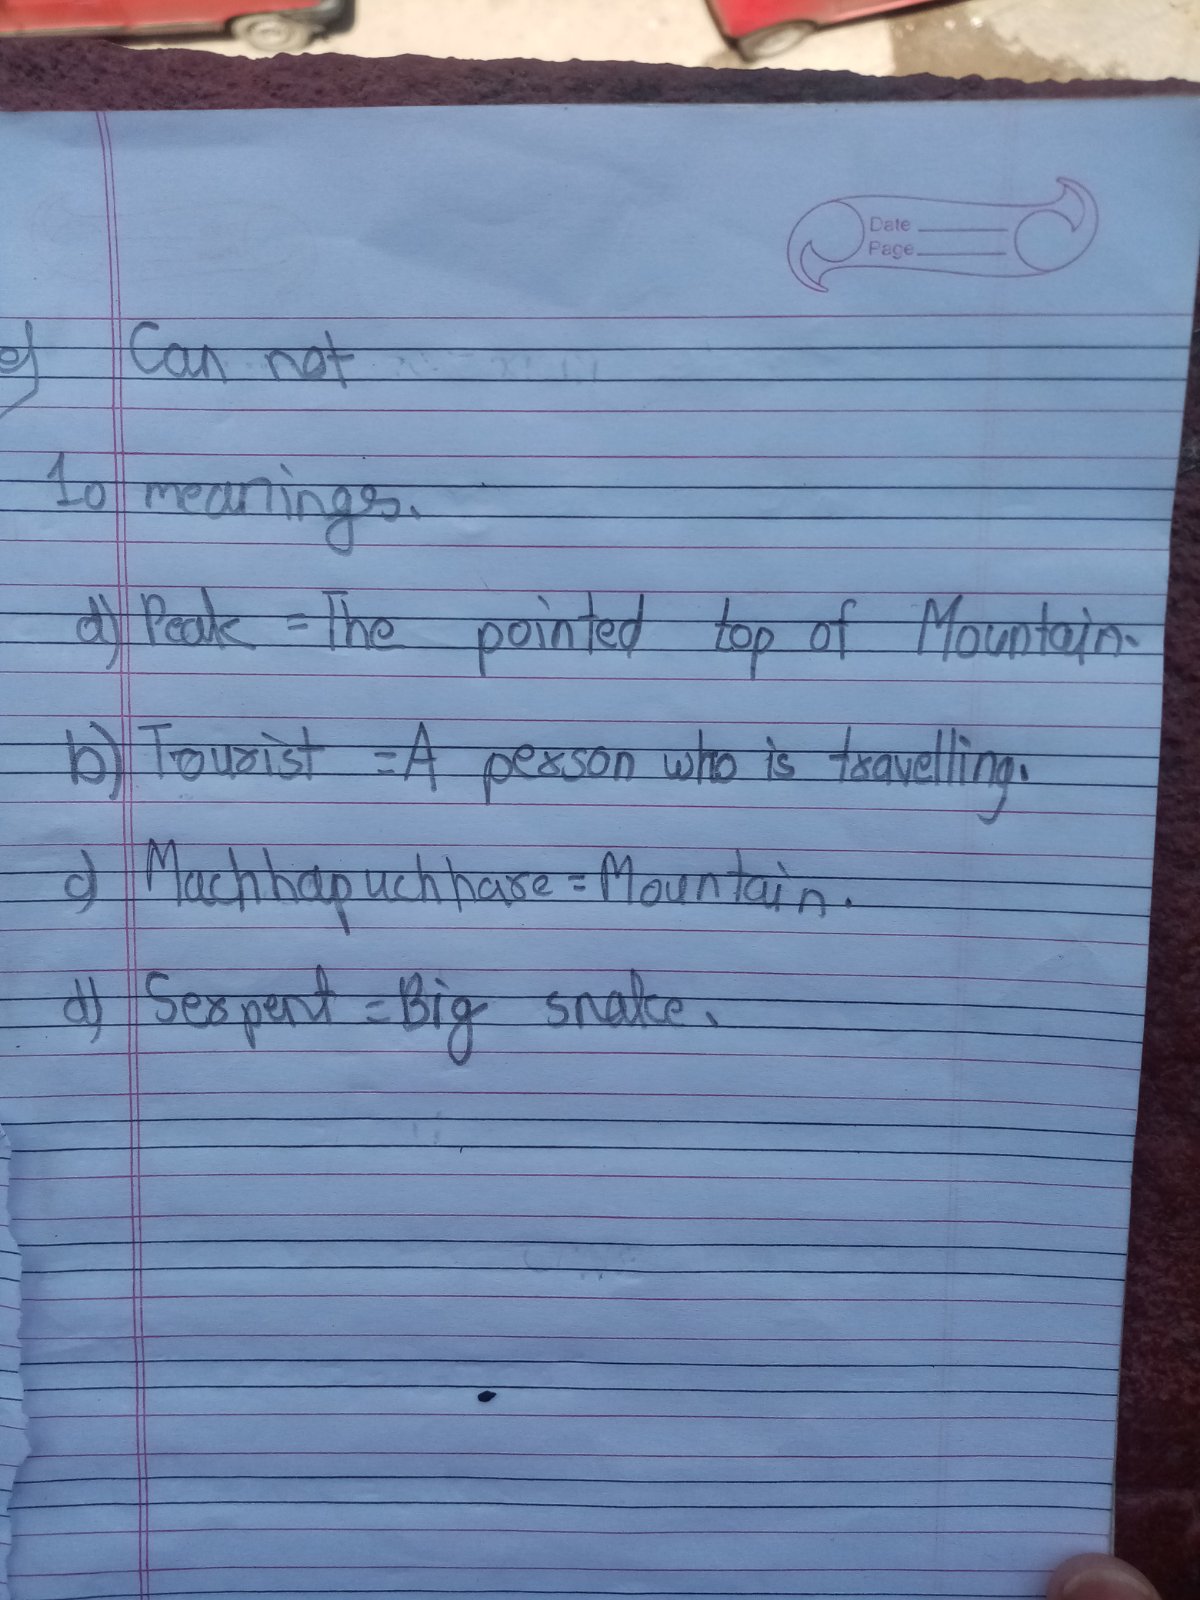 Date
Page
e) Can not
10 meanings.
a) Peak = The pointed top of Mountain.
b) Tourist = A person who is travelling.
c) Machhapuchhare = Mountain.
d) Serpent = Big snake.